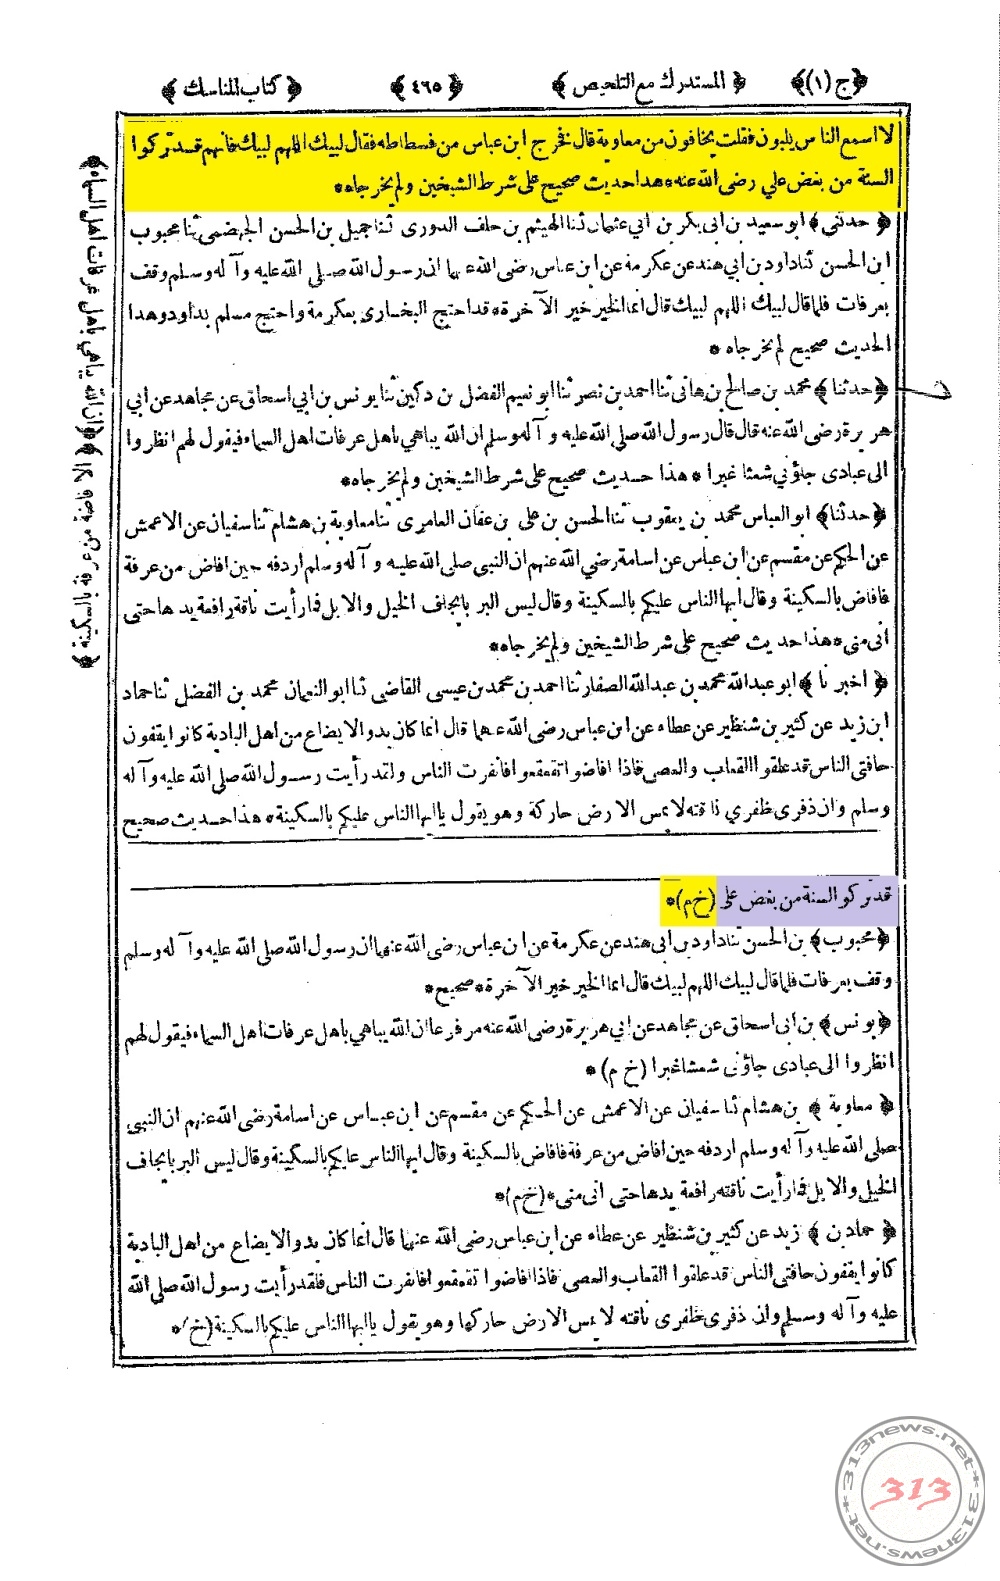 ﴿ج (١)﴾ ﴿المستدرك مع التلخيص﴾ ﴿٤٦٥﴾ ﴿كتاب المناسك﴾
لا اسمع الناس يلبون فقلت يخافون من معاوية قال فخرج ابن عباس من فسطاطه فقال لبيك اللهم لبيك فانهم قد تركوا
السنة من بغض علي رضى الله عنه * هذا حديث صحيح على شرط الشيخين ولم يخرجاه *
﴿حدثني﴾ ابو سعيد بن ابى بكر بن ابي عثمان ثنا الهيثم بن خلف الدورى ثنا جميل بن الحسن الجهضمى ثنا محبوب
ابن الحسن ثنا داود بن ابي هند عن عكرمة عن ابن عباس رضى الله عنهما ان رسول الله صلى الله عليه وآله وسلم وقف
بعرفات فلما قال لبيك اللهم لبيك قال انما الخير خير الآخرة * قد احتج البخارى بعكرمة واحتج مسلم بداود وهذا
الحديث صحيح لم يخرجاه *
﴿حدثنا﴾ محمد بن صالح بن هانى ثنا احمد بن نصر ثنا ابو نعيم الفضل بن دكين ثنا يونس بن ابي اسحاق عن مجاهد عن ابي
هريرة رضى الله عنه قال قال رسول الله صلى الله عليه وآله وسلم ان الله يباهي باهل عرفات اهل السماء فيقول لهم انظروا
الى عبادى جاؤنى شعثا غبرا * هذا حديث صحيح على شرط الشيخين ولم يخرجاه *
﴿حدثنا﴾ ابو العباس محمد بن يعقوب ثنا الحسن بن على بن عفان العامرى ثنا معاوية بن هشام ثنا سفيان عن الاعمش
عن الحكم عن مقسم عن ابن عباس عن اسامة رضي الله عنهم ان النبى صلى الله عليه وآله وسلم اردفه حين افاض من عرفة
فافاض بالسكينة وقال ايها الناس عليكم بالسكينة وقال ليس البر بايجاف الخيل والابل فما رأيت ناقة رافعة يدها حتى
اتى منى * هذا حديث صحيح على شرط الشيخين ولم يخرجاه *
﴿اخبرنا﴾ ابو عبدالله محمد بن عبدالله الصفار ثنا احمد بن محمد بن عيسى القاضى ثنا ابو النعمان محمد بن الفضل ثنا حماد
ابن زيد عن كثير بن شنظير عن عطاء عن ابن عباس رضى الله عنهما قال انما كان بدو الايضاع من اهل البادية كانوا يقفون
حافتى الناس قد علقوا القعاب والعصى فاذا افاضوا تقعقعوا فانفرت الناس ولقد رأيت رسول الله صلى الله عليه وآله
وسلم وان ذفرى ظفري ناقته لا يمس الارض حاركه وهو يقول يا ايها الناس عليكم بالسكينة * هذا حديث صحيح
قد تركوا السنة من بغض على (خ م) *
﴿محبوب﴾ بن الحسن ثنا داود بن ابى هند عن عكرمة عن ابن عباس رضى الله عنهما ان رسول الله صلى الله عليه وآله وسلم
وقف بعرفات فلما قال لبيك اللهم لبيك قال انما الخير خير الآخرة * صحيح *
﴿يونس﴾ بن ابى اسحاق عن مجاهد عن ابي هريرة رضى الله عنه مرفوعا ان الله يباهي باهل عرفات اهل السماء فيقول لهم
انظروا الى عبادى جاؤنى شعثا غبرا (خ م) *
﴿معاوية﴾ بن هشام ثنا سفيان عن الاعمش عن الحكم عن مقسم عن ابن عباس عن اسامة رضى الله عنهم ان النبى
صلى الله عليه وآله وسلم اردفه حين افاض من عرفة فافاض بالسكينة وقال ايها الناس عليكم بالسكينة وقال ليس البر بايجاف
الخيل والابل فما رأيت ناقته رافعة يدها حتى اتى منى * (خ م) *
﴿حماد بن﴾ زيد عن كثير بن شنظير عن عطاء عن ابن عباس رضى الله عنهما قال انما كان بدو الايضاع من اهل البادية
كانوا يقفون حافتى الناس قد علقوا القعاب والعصى فاذا افاضوا تقعقعوا فانفرت الناس فلقد رأيت رسول الله صلى الله
عليه وآله وسلم وان ذفرى ظفرى ناقته لا يمس الارض حاركها وهو يقول يا ايها الناس عليكم بالسكينة (خ) *
﴿ان الله يباهي باهل عرفات اهل السماء﴾ ﴿الافاضة من عرفة بالسكينة﴾
313news.net*313news.net*
313